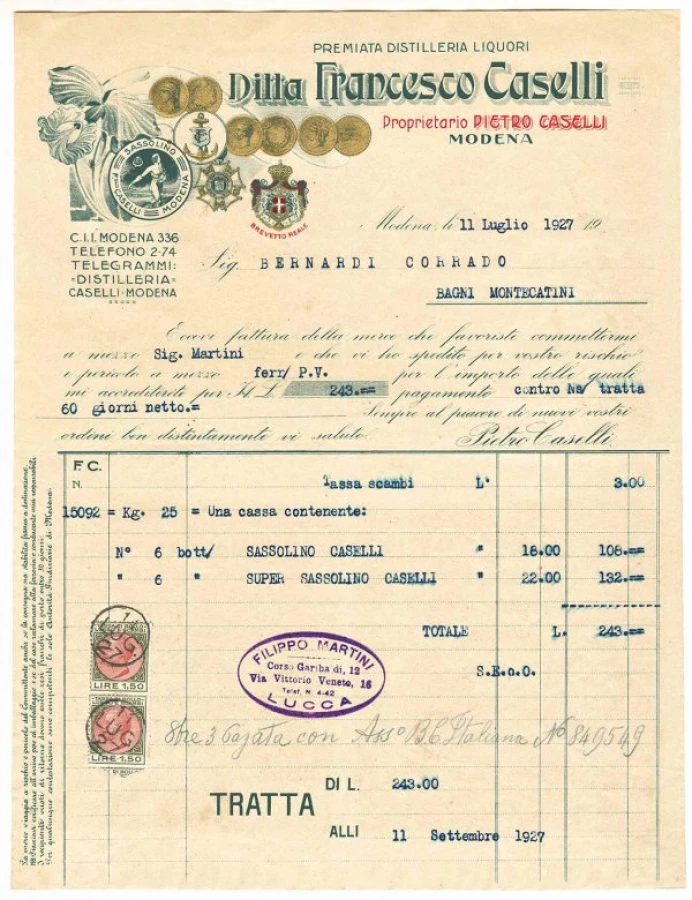 PREMIATA DISTILLERIA LIQUORI
Ditta Francesco Caselli
Proprietario PIETRO CASELLI
MODENA
SASSOLINO
F.lli CASELLI MODENA
BREVETTO REALE
C.I.I. MODENA 336
TELEFONO 2-74
TELEGRAMMI:
-DISTILLERIA-
CASELLI-MODENA
Modena, le 11 Luglio 1927 19
Sig. BERNARDI CORRADO
BAGNI MONTECATINI
Eccovi fattura della merce che favoriste commettermi
a mezzo Sig. Martini e che vi ho spedito per vostro rischio
e pericolo a mezzo ferr/ P.V. per l'importo delle quali
mi accrediterete per It. L. 243.== pagamento contro Ns/ tratta
60 giorni netto.= Sempre al piacere di nuovi vostri
ordini ben distintamente vi saluto Pietro Caselli.
F.C.
N.
Tassa scambi L. 3.00
15092 = Kg. 25 = Una cassa contenente:
N° 6 bott/ SASSOLINO CASELLI " 18.00 108.==
" 6 " SUPER SASSOLINO CASELLI " 22.00 132.==
TOTALE L. 243.==
S.E.n.O.
1
LUG.
27
LIRE 1,50
LUG
LIRE 1,50
FILIPPO MARTINI
Corso Garibaldi, 12
Via Vittorio Veneto, 16
Telef. N. 4-42
LUCCA
con Asso B.C. Italiana N° 849549
TRATTA
DI L. 243.00
ALLI 11 Settembre 1927